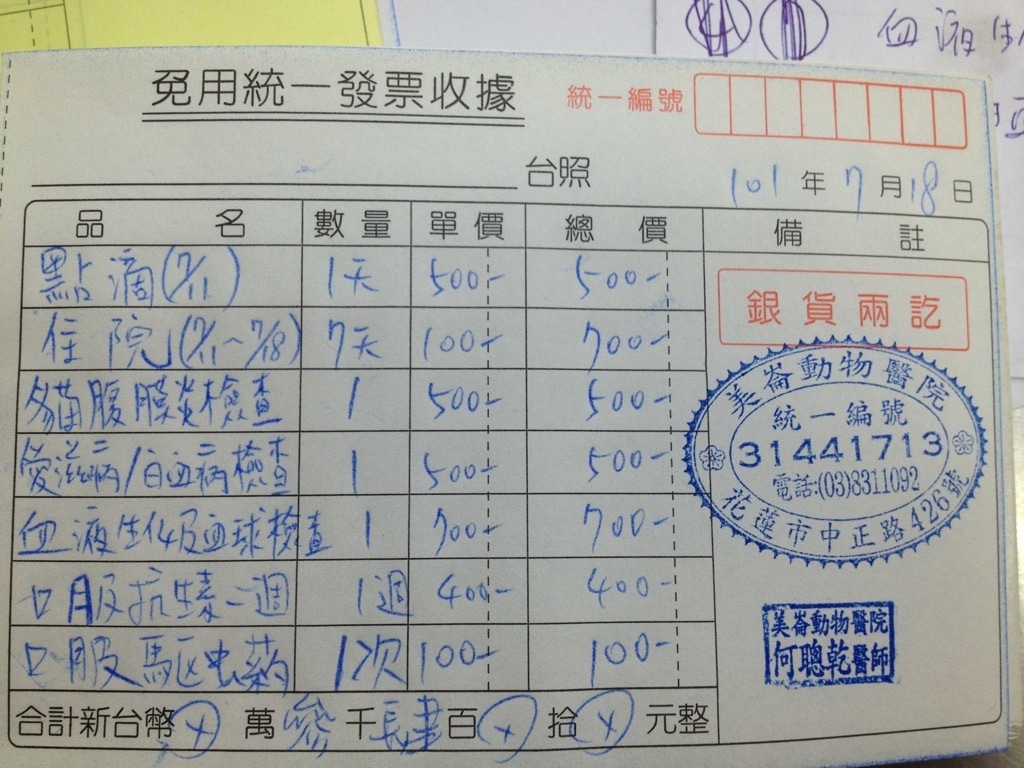 血液生
免用統一發票收據
統一編號
台照
101年7月18日
品名 數量 單價 總價 備註
點滴(7/11) 1天 500- 500-
住院(7/11~7/18) 7天 100- 700-
貓腹膜炎檢查 1 500- 500-
愛滋病/白血病檢查 1 500- 500-
血液生化及血球檢查 1 700- 700-
口服抗生素一週 1週 400- 400-
口服驅虫药 1次 100- 100-
合計新台幣 萬參千肆百 拾 元整
銀貨兩訖
美崙動物醫院
統一編號
31441713
電話:(03)8311092
花蓮市中正路426號
美崙動物醫院
何聰乾醫師